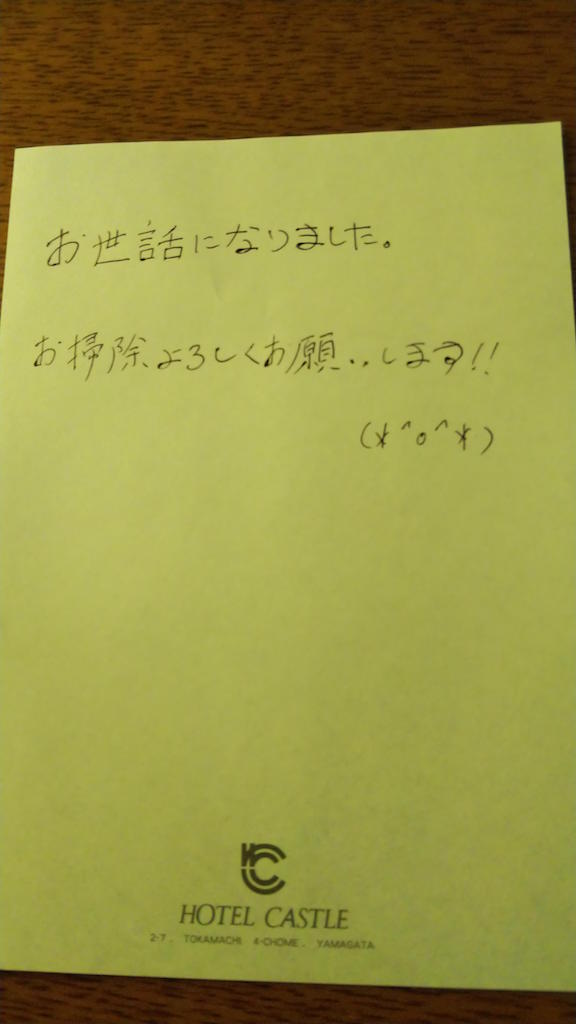 お世話になりました。
お掃除よろしくお願いします!!
(*^o^*)
HOTEL CASTLE
2-7, TOKAMACHI 4-CHOME, YAMAGATA